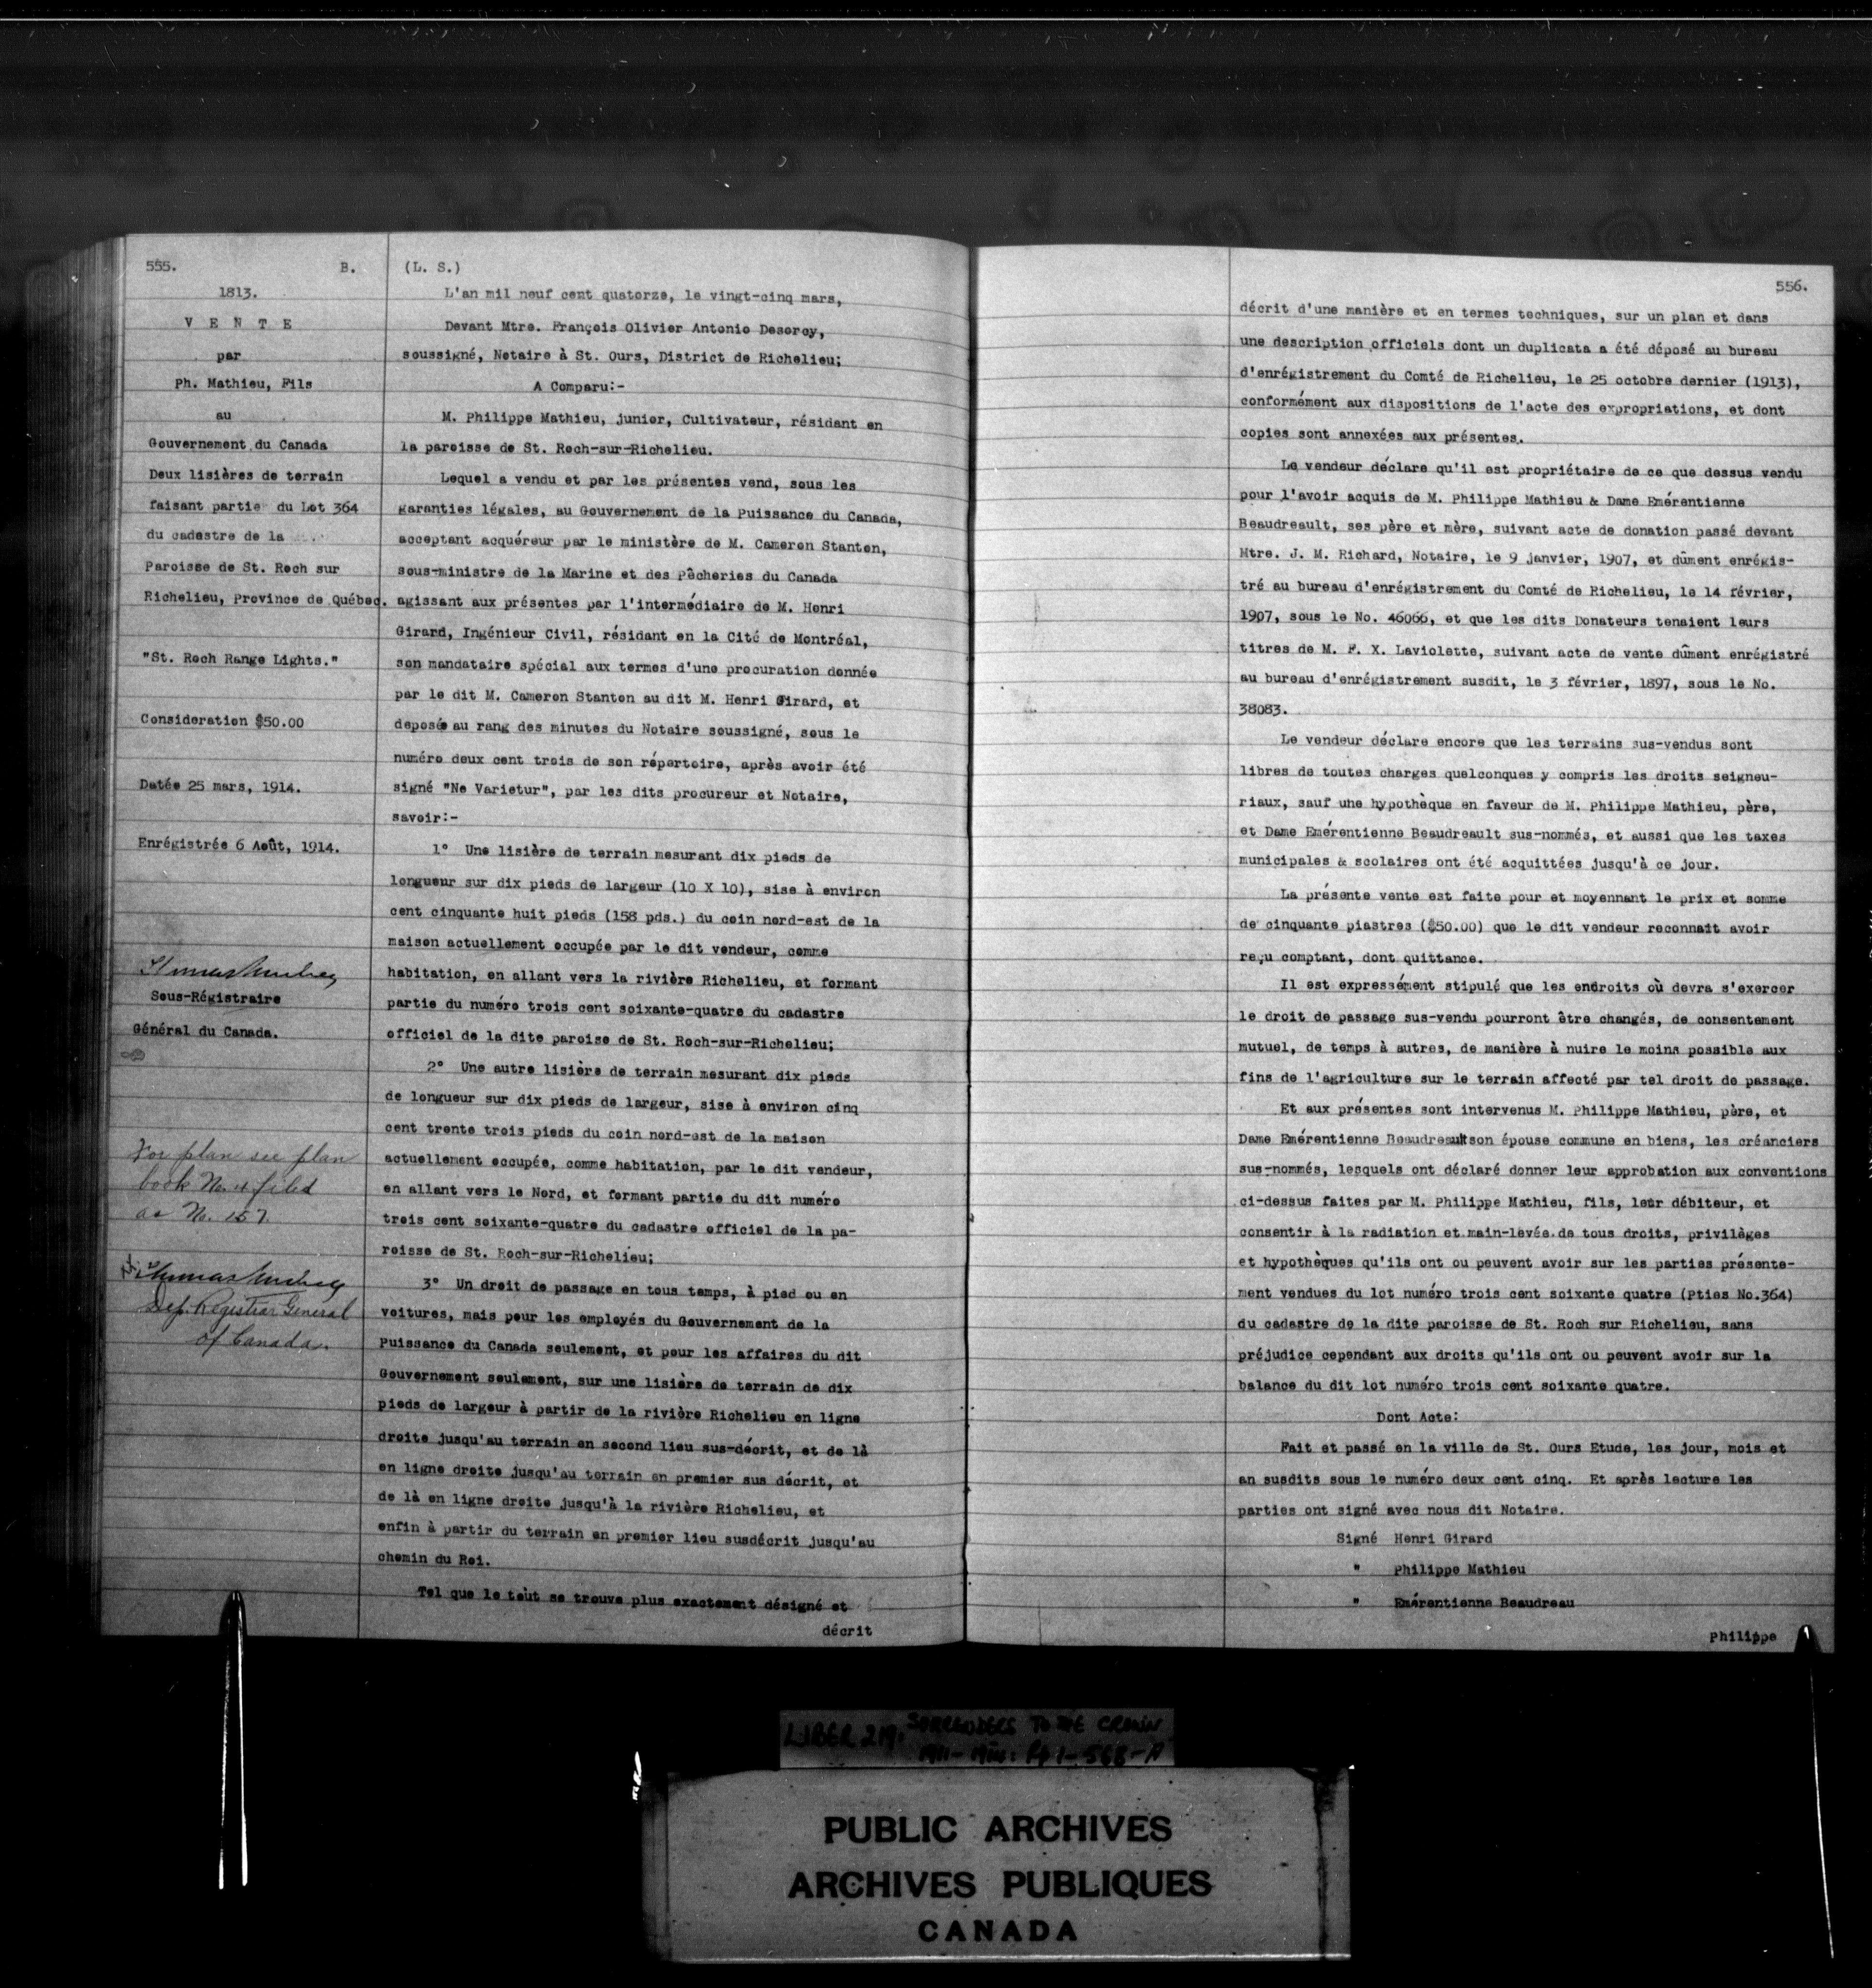 555.
B.
1813.
V E N T E
par
Ph. Mathieu, Fils
au
Gouvernement du Canada
Deux lisières de terrain
faisant partie du Lot 364
du cadastre de la
Paroisse de St. Roch sur
Richelieu, Province de Québec.
"St. Roch Range Lights."
Consideration $50.00
Datée 25 mars, 1914.
Enrégistrée 6 Août, 1914.
Thomas Mulvey
Sous-Régistraire
Général du Canada.
For plan see plan
book No. 4 filed
as No. 157
Thomas Mulvey
Dep. Registrar General
of Canada.
(L. S.)
L'an mil neuf cent quatorze, le vingt-cinq mars,
Devant Mtre. François Olivier Antonio Desorcy,
soussigné, Notaire à St. Ours, District de Richelieu;
A Comparu:-
M. Philippe Mathieu, junior, Cultivateur, résidant en
la paroisse de St. Roch-sur-Richelieu.
Lequel a vendu et par les présentes vend, sous les
garanties légales, au Gouvernement de la Puissance du Canada,
acceptant acquéreur par le ministère de M. Cameron Stanton,
sous-ministre de la Marine et des Pêcheries du Canada
agissant aux présentes par l'intermédiaire de M. Henri
Girard, Ingénieur Civil, résidant en la Cité de Montréal,
son mandataire spécial aux termes d'une procuration donnée
par le dit M. Cameron Stanton au dit M. Henri Girard, et
deposée au rang des minutes du Notaire soussigné, sous le
numéro deux cent trois de son répertoire, après avoir été
signé "Ne Varietur", par les dits procureur et Notaire,
savoir:-
1° Une lisière de terrain mesurant dix pieds de
longueur sur dix pieds de largeur (10 X 10), sise à environ
cent cinquante huit pieds (158 pds.) du coin nord-est de la
maison actuellement occupée par le dit vendeur, comme
habitation, en allant vers la rivière Richelieu, et formant
partie du numéro trois cent soixante-quatre du cadastre
officiel de la dite paroise de St. Roch-sur-Richelieu;
2° Une autre lisière de terrain mesurant dix pieds
de longueur sur dix pieds de largeur, sise à environ cinq
cent trente trois pieds du coin nord-est de la maison
actuellement occupée, comme habitation, par le dit vendeur,
en allant vers le Nord, et formant partie du dit numéro
trois cent soixante-quatre du cadastre officiel de la pa-
roisse de St. Roch-sur-Richelieu;
3° Un droit de passage en tous temps, à pied ou en
voitures, mais pour les employés du Gouvernement de la
Puissance du Canada seulement, et pour les affaires du dit
Gouvernement seulement, sur une lisière de terrain de dix
pieds de largeur à partir de la rivière Richelieu en ligne
droite jusqu'au terrain en second lieu sus-décrit, et de là
en ligne droite jusqu'au terrain en premier sus décrit, et
de là en ligne droite jusqu'à la rivière Richelieu, et
enfin à partir du terrain en premier lieu susdécrit jusqu'au
chemin du Roi.
Tel que le tout se trouve plus exactement désigné et
décrit
556.
décrit d'une manière et en termes techniques, sur un plan et dans
une description officiels dont un duplicata a été déposé au bureau
d'enrégistrement du Comté de Richelieu, le 25 octobre dernier (1913),
conformément aux dispositions de l'acte des expropriations, et dont
copies sont annexées aux présentes.
Le vendeur déclare qu'il est propriétaire de ce que dessus vendu
pour l'avoir acquis de M. Philippe Mathieu & Dame Emérentienne
Beaudreault, ses père et mère, suivant acte de donation passé devant
Mtre. J. M. Richard, Notaire, le 9 janvier, 1907, et dûment enrégis-
tré au bureau d'enrégistrement du Comté de Richelieu, le 14 février,
1907, sous le No. 46066, et que les dits Donateurs tenaient leurs
titres de M. F. X. Laviolette, suivant acte de vente dûment enrégistré
au bureau d'enrégistrement susdit, le 3 février, 1897, sous le No.
38083.
Le vendeur déclare encore que les terrains sus-vendus sont
libres de toutes charges quelconques y compris les droits seigneu-
riaux, sauf une hypothèque en faveur de M. Philippe Mathieu, père,
et Dame Emérentienne Beaudreault sus-nommés, et aussi que les taxes
municipales & scolaires ont été acquittées jusqu'à ce jour.
La présente vente est faite pour et moyennant le prix et somme
de cinquante piastres ($50.00) que le dit vendeur reconnait avoir
reçu comptant, dont quittance.
Il est expressément stipulé que les endroits où devra s'exercer
le droit de passage sus-vendu pourront être changés, de consentement
mutuel, de temps à autres, de manière à nuire le moins possible aux
fins de l'agriculture sur le terrain affecté par tel droit de passage.
Et aux présentes sont intervenus M. Philippe Mathieu, père, et
Dame Emérentienne Beaudreault son épouse commune en biens, les créanciers
sus-nommés, lesquels ont déclaré donner leur approbation aux conventions
ci-dessus faites par M. Philippe Mathieu, fils, leur débiteur, et
consentir à la radiation et main-levée de tous droits, privilèges
et hypothèques qu'ils ont ou peuvent avoir sur les parties présente-
ment vendues du lot numéro trois cent soixante quatre (Pties No.364)
du cadastre de la dite paroisse de St. Roch sur Richelieu, sans
préjudice cependant aux droits qu'ils ont ou peuvent avoir sur la
balance du dit lot numéro trois cent soixante quatre.
Dont Acte:
Fait et passé en la ville de St. Ours Etude, les jour, mois et
an susdits sous le numéro deux cent cinq. Et après lecture les
parties ont signé avec nous dit Notaire.
Signé Henri Girard
" Philippe Mathieu
" Emérentienne Beaudreau
Philippe
LIBER 219. SURRENDERS TO THE CROWN
1911-1914: P# 1-568-A
PUBLIC ARCHIVES
ARCHIVES PUBLIQUES
CANADA